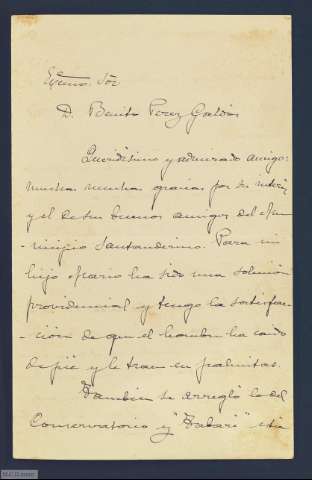 Excmo. Sor
D. Benito Perez Galdós
Queridísimo y admirado amigo:
muchas muchas gracias por su interés
y el de sus buenos amigos del Mu-
nicipio Santanderino. Para mi
hijo Mario ha sido una solución
providencial y tengo la satisfac-
-ción de que el hombre ha caido
de pié y le traen en palmitas.
Tambien se arregló lo del
Conservatorio y "Tabaré" está